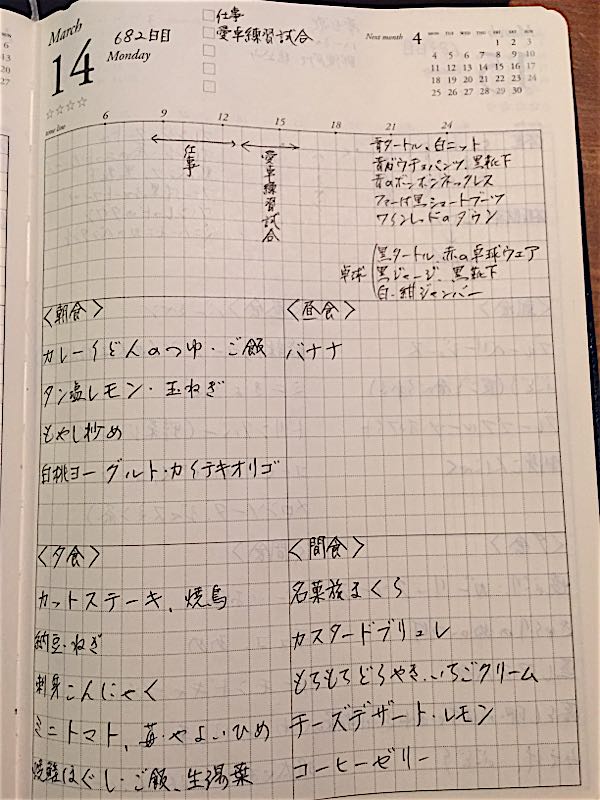 March
14
682日目
Monday
☆☆☆☆
仕事
愛卓練習試合
Next month 4
MON TUE WED THU FRI SAT SUN
1 2 3
4 5 6 7 8 9 10
11 12 13 14 15 16 17
18 19 20 21 22 23 24
25 26 27 28 29 30
time line 6 9 12 15 18 21 24
仕事
愛卓練習試合
青タートル、白ニット
青ガウチョパンツ、黒靴下
青のボンボンネックレス
ファー付黒ショートブーツ
ワインレッドのダウン
卓球
黒タートル、赤の卓球ウェア
黒ジャージ、黒靴下
白・紺ジャンパー
<朝食>
カレーうどんのつゆ・ご飯
タン塩レモン・玉ねぎ
もやし炒め
白桃ヨーグルト・カイテキオリゴ
<昼食>
バナナ
<夕食>
カットステーキ、焼鳥
納豆・ねぎ
刺身こんにゃく
ミニトマト、苺・やよいひめ
焼鮭ほぐし・ご飯、生湯葉
<間食>
名菓旅まくら
カスタードブリュレ
もちもちどらやき・いちごクリーム
チーズデザート・レモン
コーヒーゼリー